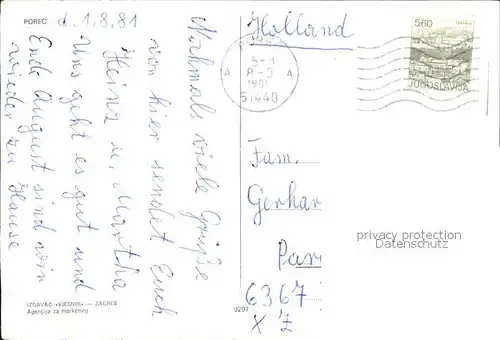 POREČ
d. 1.8.81
Nochmals viele Grüße
von hier sendet Euch
Heinz u. Martha
Uns geht es gut und
Ende August sind wir
wieder zu Hause
IZDAVAČ »VJESNIK« — ZAGREB
Agencija za marketing
9207
Holland
A A
8-9
1981
51440
5.60
JUGOSLAVIJA
Fam.
Gerhar
Par
6367
X Z
privacy protection
Datenschutz